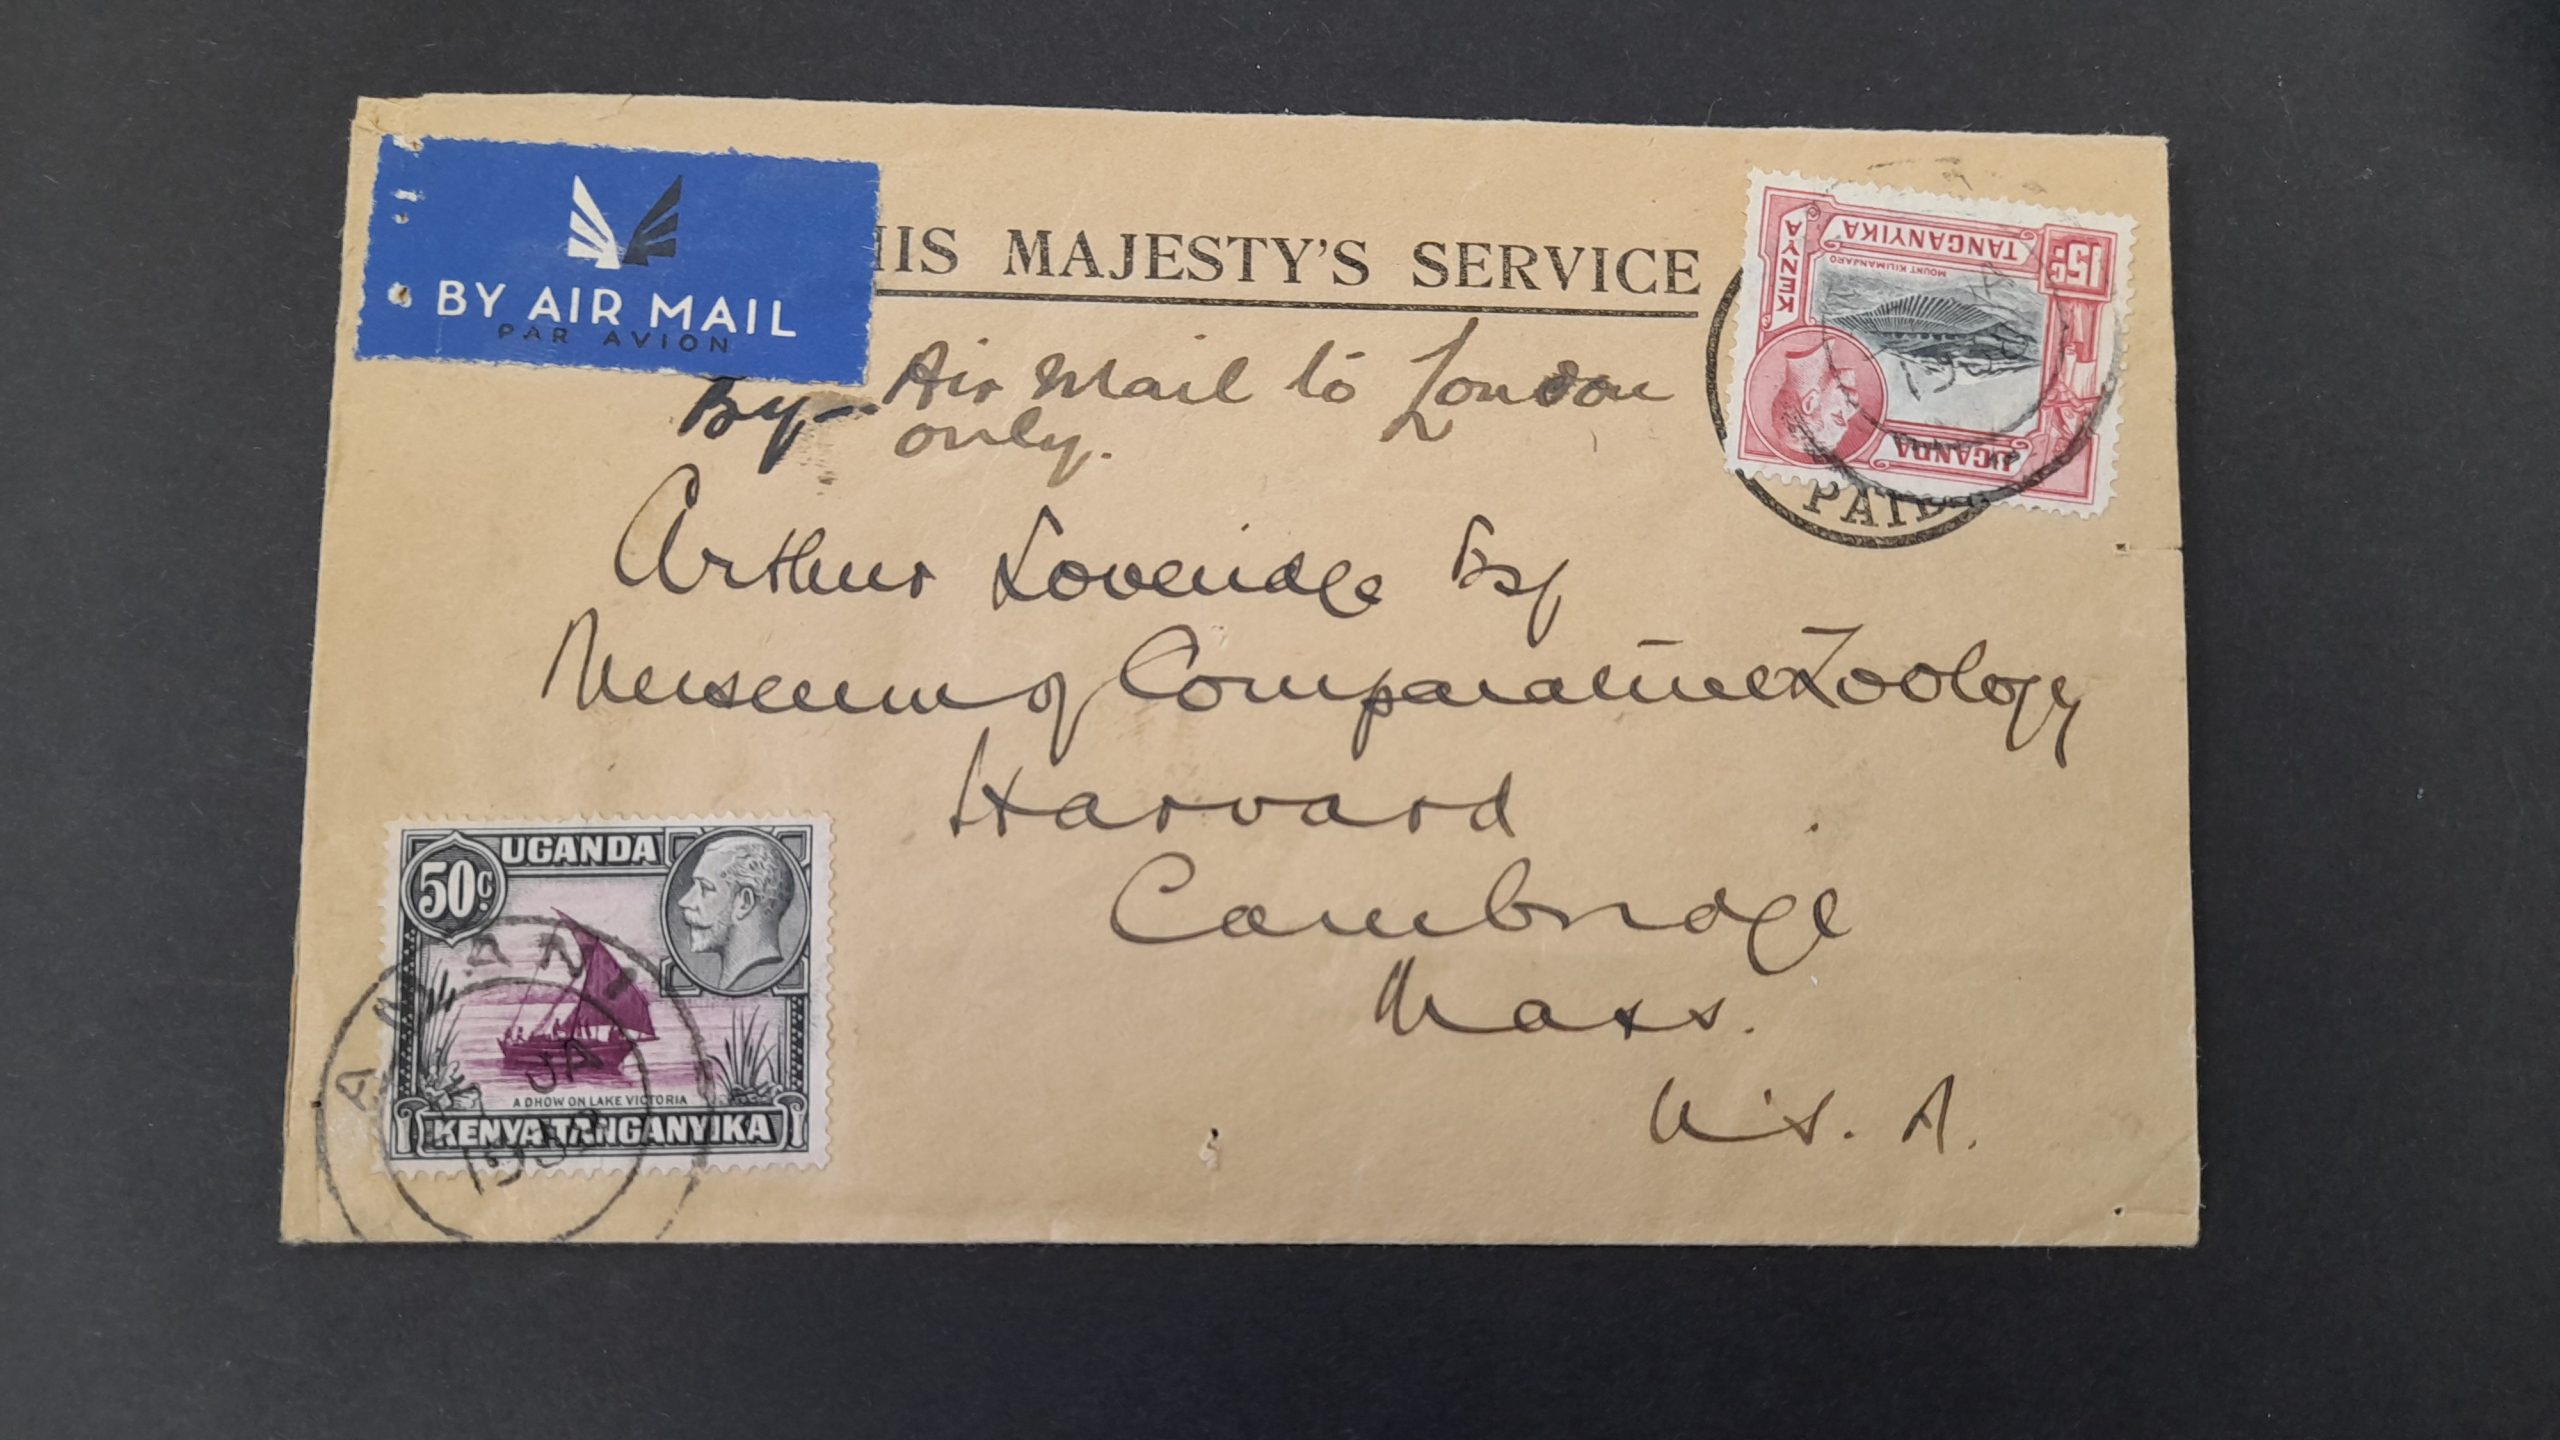 BY AIR MAIL
PAR AVION
HIS MAJESTY'S SERVICE
By Air Mail to London
only.
Arthur Loveridge Esq
Museum of Comparative Zoology
Harvard
Cambridge
Mass.
U.S.A.
KENYA
TANGANYIKA
15c
MOUNT KILIMANJARO
UGANDA
PAID
50c
UGANDA
A DHOW ON LAKE VICTORIA
KENYA TANGANYIKA
AMANI
JA